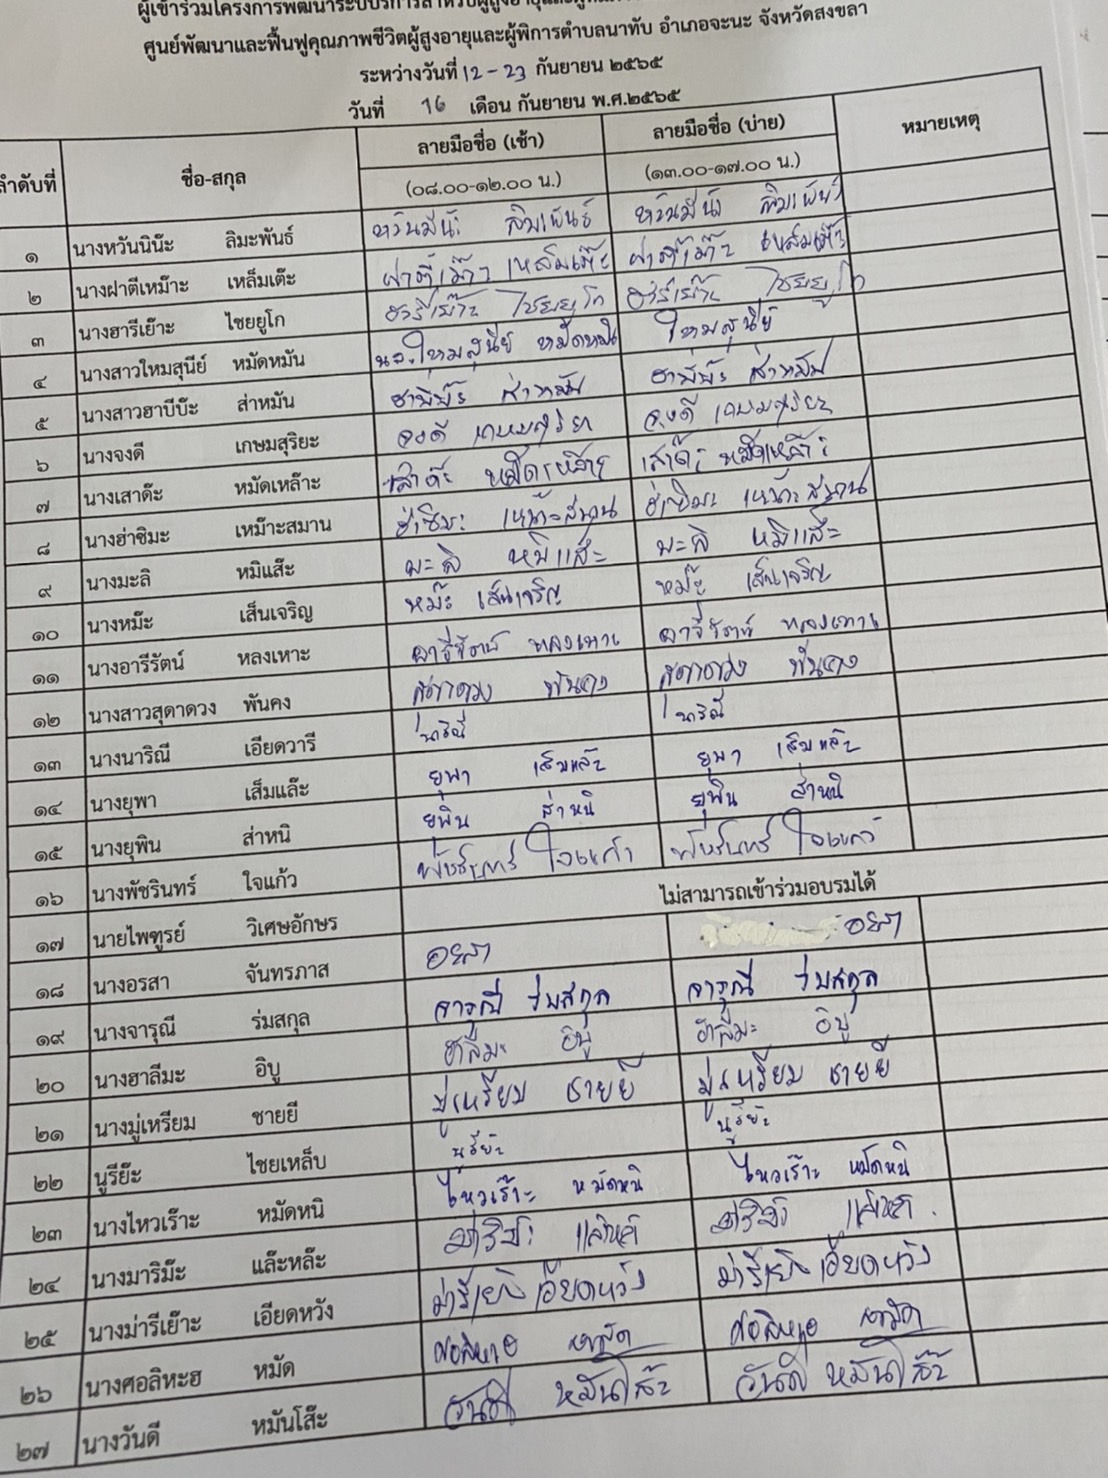 ผู้เข้าร่วมโครงการพัฒนาระบบบริการสำหรับผู้สูงอายุและ
ศูนย์พัฒนาและฟื้นฟูคุณภาพชีวิตผู้สูงอายุและผู้พิการตำบลนาทับ อำเภอจะนะ จังหวัดสงขลา
ระหว่างวันที่ 12-23 กันยายน ๒๕๖๕
วันที่ 16 เดือน กันยายน พ.ศ.๒๕๖๕
ลำดับที่ ชื่อ-สกุล ลายมือชื่อ (เช้า) ลายมือชื่อ (บ่าย) หมายเหตุ
(๐๘.๐๐-๑๒.๐๐ น.) (๑๓.๐๐-๑๗.๐๐ น.)
๑ นางหวันนิน๊ะ ลิมะพันธ์
๒ นางฝาตีเหม๊าะ เหล็มเต๊ะ
๓ นางฮารีเย๊าะ ไชยยูโก ไชยยูโก ไชยยูโก
๔ นางสาวใหมสุนีย์ หมัดหมัน น.ส.ใหมสุนีย์ หมัดหมัน ใหมสุนีย์
๕ นางสาวฮาบีบ๊ะ ส่าหมัน ฮาบีบ๊ะ ส่าหมัน ฮาบีบ๊ะ ส่าหมัน
๖ นางจงดี เกษมสุริยะ จงดี เกษมสุริยะ จงดี เกษมสุริยะ
๗ นางเสาด๊ะ หมัดเหล๊าะ เสาด๊ะ หมัดเหล๊าะ เสาด๊ะ หมัดเหล๊าะ
๘ นางฮ่าซิมะ เหม๊าะสมาน ฮ่าซิมะ เหม๊าะสมาน ฮ่าซิมะ เหม๊าะสมาน
๙ นางมะลิ หมิแส๊ะ มะลิ หมิแส๊ะ มะลิ หมิแส๊ะ
๑๐ นางหม๊ะ เส็นเจริญ หม๊ะ เส็นเจริญ หม๊ะ เส็นเจริญ
๑๑ นางอารีรัตน์ หลงเหาะ อารีรัตน์ หลงเหาะ อารีรัตน์ หลงเหาะ
๑๒ นางสาวสุดาดวง พันคง สุดาดวง พันคง สุดาดวง พันคง
๑๓ นางนาริณี เอียดวารี นาริณี นาริณี
๑๔ นางยุพา เส็มแล๊ะ ยุพา เส็มแล๊ะ ยุพา เส็มแล๊ะ
๑๕ นางยุพิน ส่าหนิ ยุพิน ส่าหนิ ยุพิน ส่าหนิ
๑๖ นางพัชรินทร์ ใจแก้ว พัชรินทร์ ใจแก้ว พัชรินทร์ ใจแก้ว
๑๗ นายไพฑูรย์ วิเศษอักษร ไม่สามารถเข้าร่วมอบรมได้
๑๘ นางอรสา จันทรภาส อรสา อรสา
๑๙ นางจารุณี ร่มสกุล จารุณี ร่มสกุล จารุณี ร่มสกุล
๒๐ นางฮาลีมะ อิบู ฮาลีมะ อิบู ฮาลีมะ อิบู
๒๑ นางมู่เหรียม ชายยี มู่เหรียม ชายยี มู่เหรียม ชายยี
๒๒ นูรีย๊ะ ไชยเหล็บ นูรีย๊ะ นูรีย๊ะ
๒๓ นางไหวเร๊าะ หมัดหนิ ไหวเร๊าะ หมัดหนิ ไหวเร๊าะ หมัดหนิ
๒๔ นางมาริม๊ะ แล๊ะหล๊ะ
๒๕ นางม่ารีเย๊าะ เอียดหวัง เอียดหวัง เอียดหวัง
๒๖ นางศอลิหะฮ หมัด
๒๗ นางวันดี หมันโส๊ะ วันดี หมันโส๊ะ วันดี หมันโส๊ะ